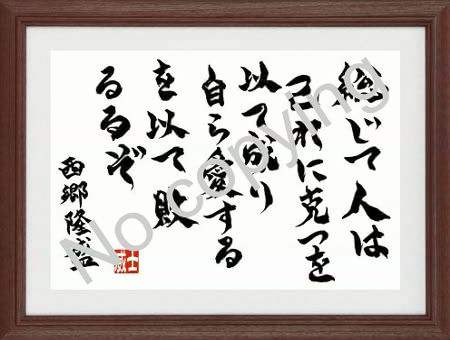 総じて人は
己れに克つを
以て成り
自ら愛する
を以て敗
るるぞ
西郷隆盛
No copying